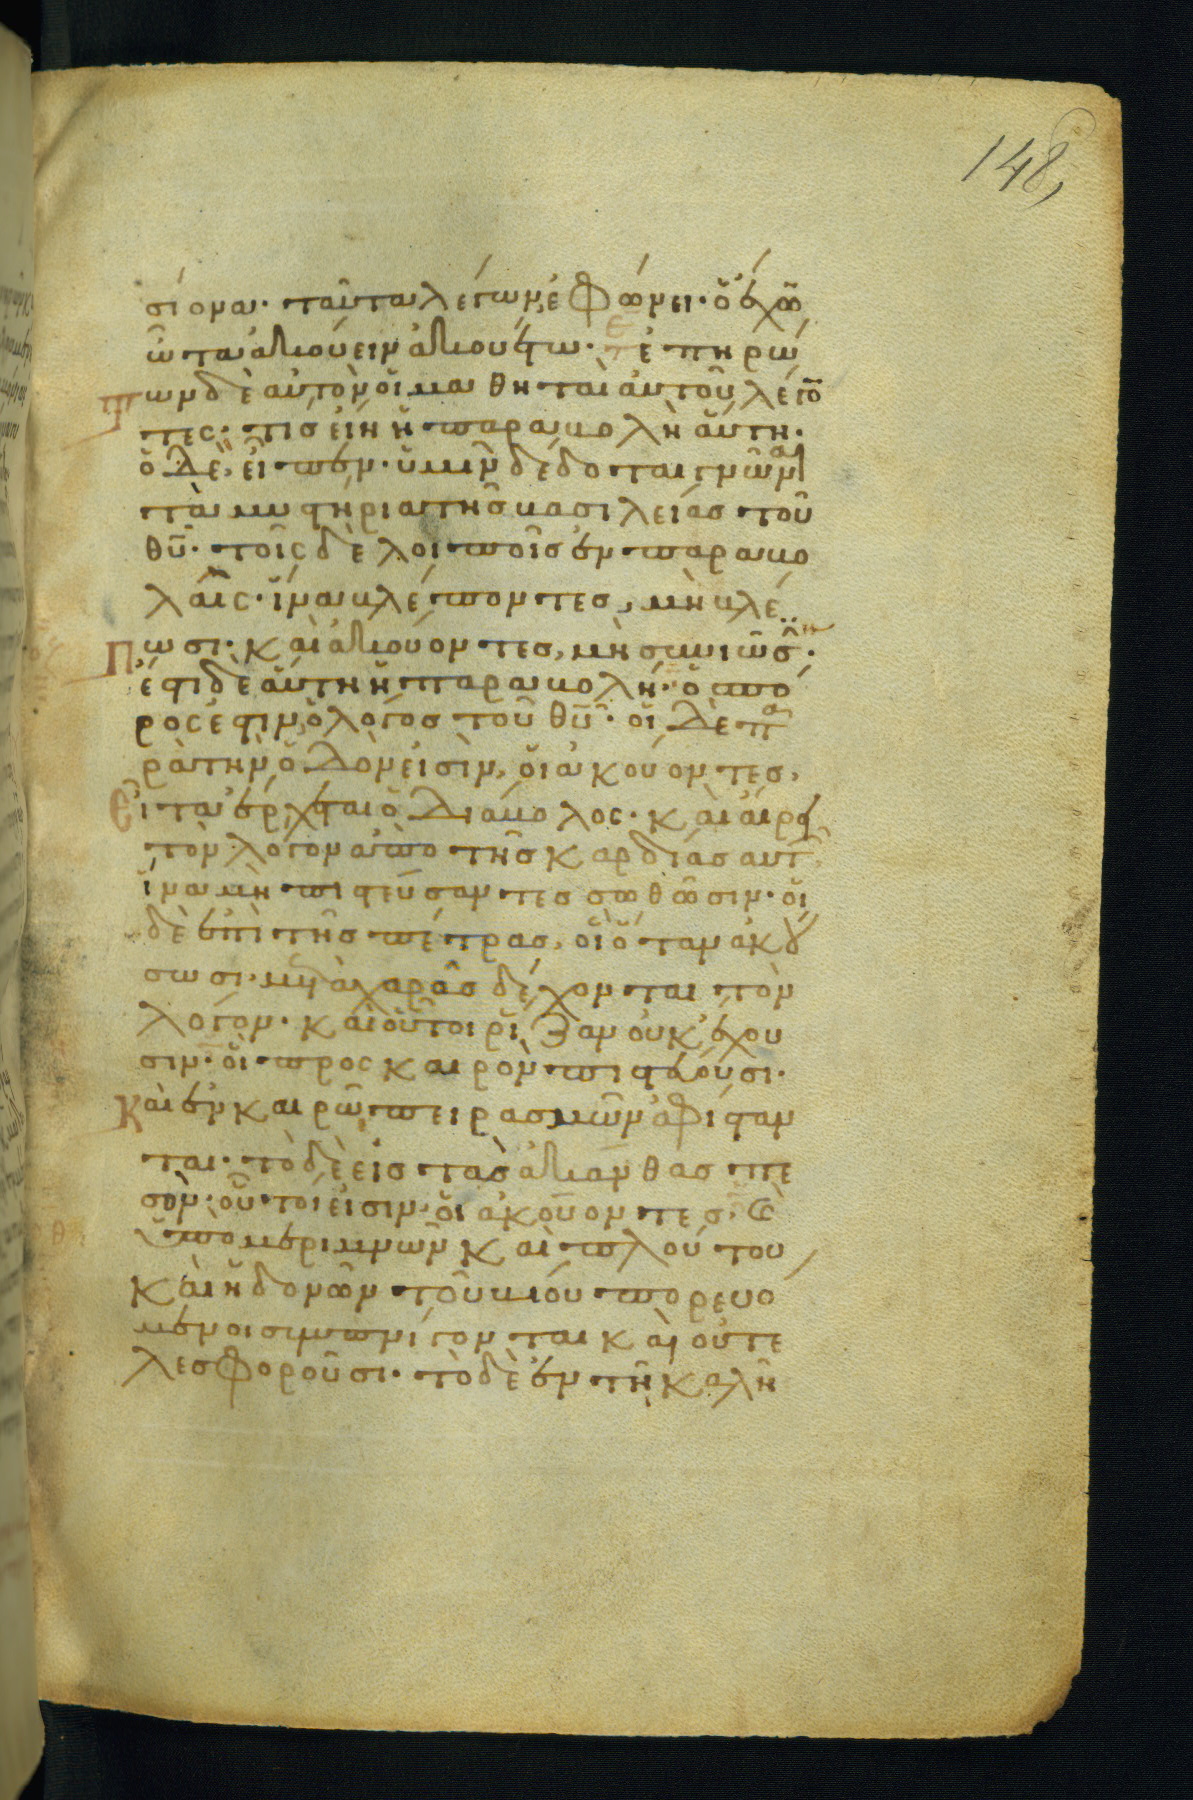 148,
σίονα· ταῦτα λέγων, ἐφώνει· ὁ ἔχῶ
ὦτα ἀκούειν ἀκουέτω· ἐπηρώ
των δὲ αὐτὸν οἱ μαθηταὶ αὐτοῦ λέγο
τες· τίς εἴη ἡ παραβολὴ αὕτη·
ὁ δὲ, εἶπεν· ὑμῖν δέδοται γνῶναι
τὰ μυστήρια τῆς βασιλείας τοῦ
θυ̅· τοῖς δὲ λοιποῖς ἐν παραβο
λαῖς· ἵνα βλέποντες, μὴ βλέ
πωσι· καὶ ἀκούοντες, μὴ συνιῶσ·
ἔστι δὲ αὕτη ἡ παραβολή· ὁ σπό
ρος ἐστὶν, ὁ λόγος τοῦ θυ̅· οἱ δὲ πα
ρὰ τὴν ὁδὸν εἰσὶν, οἱ ἀκούοντες,
εἶτα ἔρχεται ὁ διάβολος· καὶ αἴρει
τὸν λόγον ἀπὸ τῆς καρδίας αυτ
ἵνα μὴ πιστεύσαντες σωθῶσιν· οἱ
δὲ ἐπὶ τῆς πέτρας, οἳ ὅταν ἀκού
σωσι· μετὰ χαρᾶς δέχονται τὸν
λόγον· καὶ οὗτοι ῥίζαν οὐκ ἔχου
σιν· οἳ προς καιρὸν πιστεύουσι·
καὶ ἐν καιρῷ πειρασμῶν ἀφίσταν
ται· τὸ δὲ εἰς τὰς ἀκάνθας πε
σὸν· οὗτοί εἰσιν· οἱ ἀκούοντες· καὶ
ὑπο μεριμνῶν καὶ πλούτου
καὶ ἡδονῶν τοῦ βίου πορευό
μενοι συμπνίγονται καὶ οὐ τε
λεσφοροῦσι· τὸ δὲ ἐν τῇ καλῇ